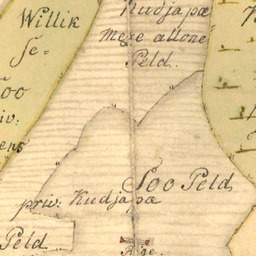 Willik
se-
Soo
iv:
ens
Kudjapæ
Mæe allone
Peld.
Soo Peld
priv: Kudjapæ
Peld